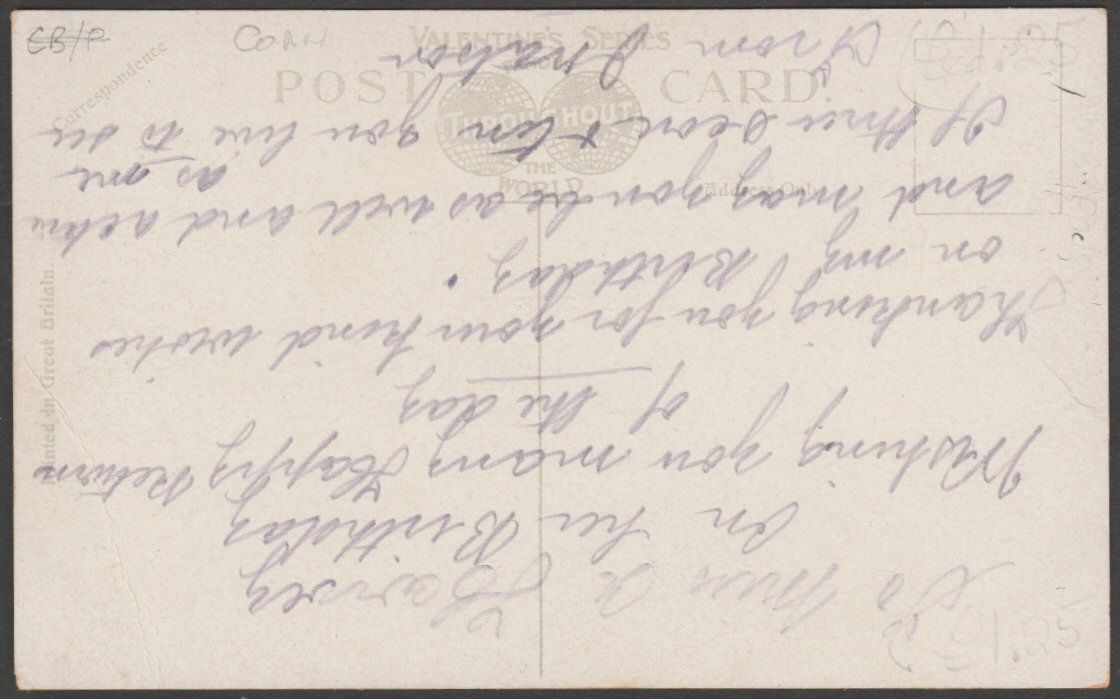 EB/P
CORN
VALENTINE'S SERIES
POST CARD.
THROUGHOUT
THE
WORLD
Correspondence
Address Only
Printed in Great Britain.
£1.25
To Miss
on her Birthday
Wishing you many Happy Return
of the day
Thanking you for your kind wishes
on my Birthday.
and may you be as well and active
as me
If three score & ten you live to see
From